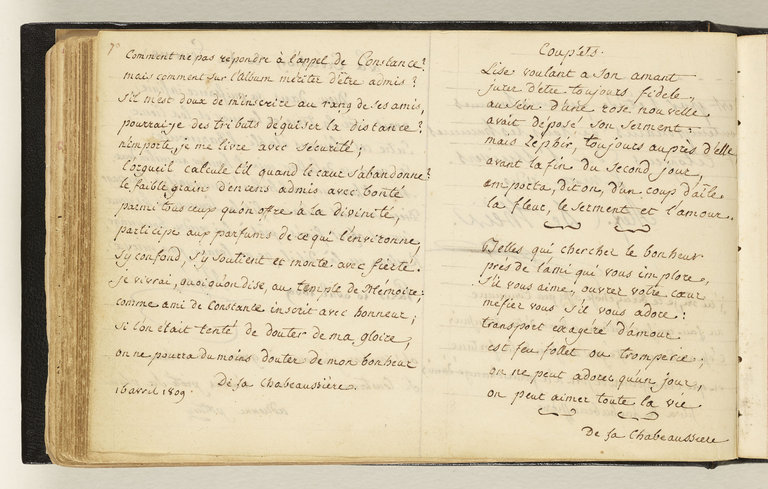 Comment ne pas répondre à l'appel de Constance?
mais comment sur l'album mériter d'être admis?
s'il m'est doux de m'inscrire au rang de ses amis,
pourrai je des tributs déguiser la distance?
n'importe, je me livre avec sécurité;
l'orgueil calcule t'il quand le cœur s'abandonne?
le faible grain d'encens admis avec bonté
parmi tous ceux qu'on offre à la divinité,
participe aux parfums de ce qui l'environne,
s'y confond, s'y soutient et monte avec fierté.
je vivrai, quoiqu'on dise, au temple de Mémoire;
comme ami de Constance inscrit avec honneur;
si l'on était tenté de douter de ma gloire,
on ne pourra du moins douter de mon bonheur
De la Chabeaussière.
16 avril 1809.
Couplets.
Lise voulant a son amant
jurer d'être toujours fidele,
au sein d'une rose nouvelle
avait déposé son serment:
mais Zephir, toujours auprès d'elle
avant la fin du second jour,
emporta, dit on, d'un coup d'aîle
la fleur, le serment et l'amour.
Belles qui cherchez le bonheur
près de l'ami qui vous implore,
s'il vous aime, ouvrez votre cœur
méfiez vous s'il vous adore:
transport exagéré d'amour
est feu follet ou tromperie;
on ne peut adorer qu'un jour,
on peut aimer toute la vie.
De la Chabeaussiere